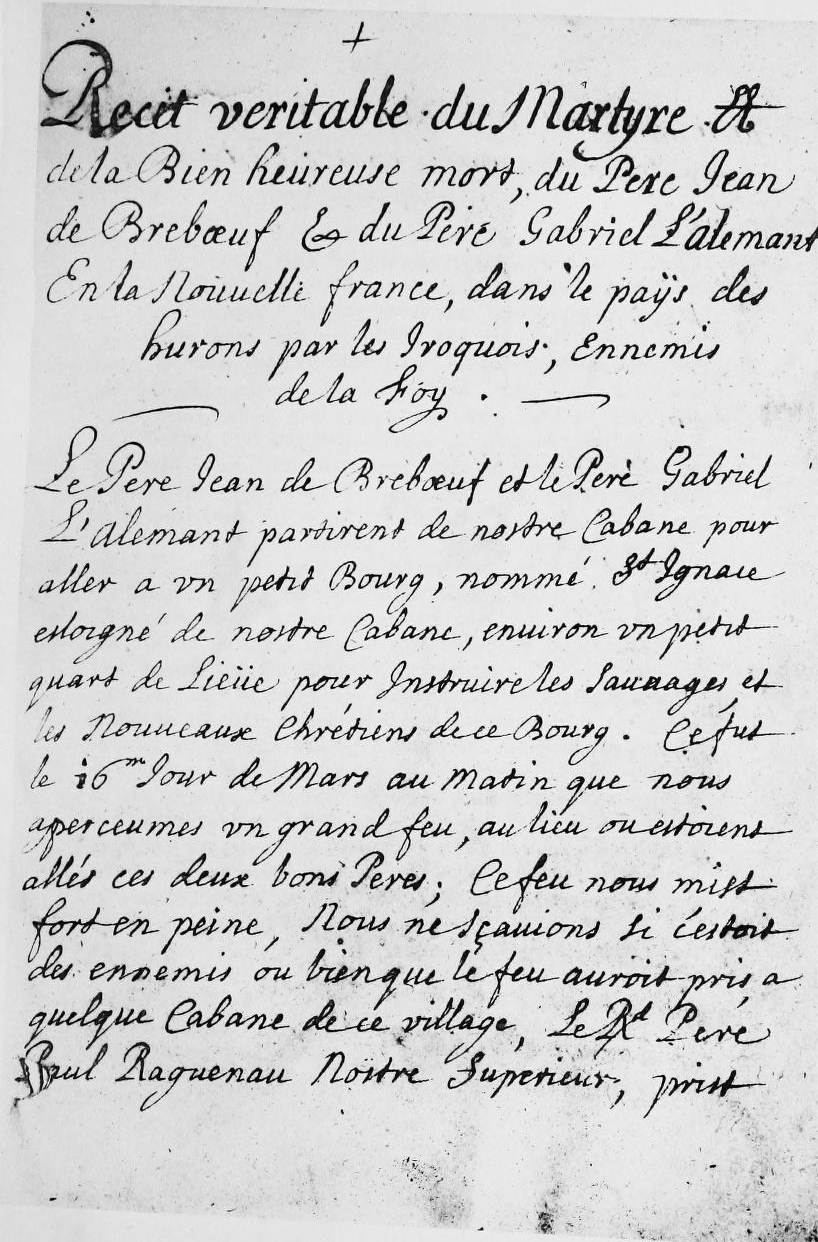 +
Recit veritable du Martyre Et
de la Bien heureuse mort, du Pere Jean
de Brebœuf & du Pere Gabriel L'alemant
En la Nouuelle france, dans le paÿs des
hurons par les Iroquois, Ennemis
de la Foy.
Le Pere Jean de Brebœuf et le Pere Gabriel
L'alemant partirent de nostre Cabane pour
aller a vn petit Bourg, nommé St Ignace
esloigné de nostre Cabane, enuiron vn petit
quart de Lieüe pour Instruire les Sauuages, et
les Nouueaux Chrétiens de ce Bourg. Ce fut
le 16m Jour de Mars au Matin que nous
aperceumes vn grand feu, au lieu ou estoient
allés ces deux bons Peres; Ce feu nous mist
fort en peine, Nous ne sçauions si c'estoit
des ennemis ou bien que le feu auroit pris a
quelque Cabane de ce village, Le Rd Pere
Paul Raguenau Nostre Superieur, prist